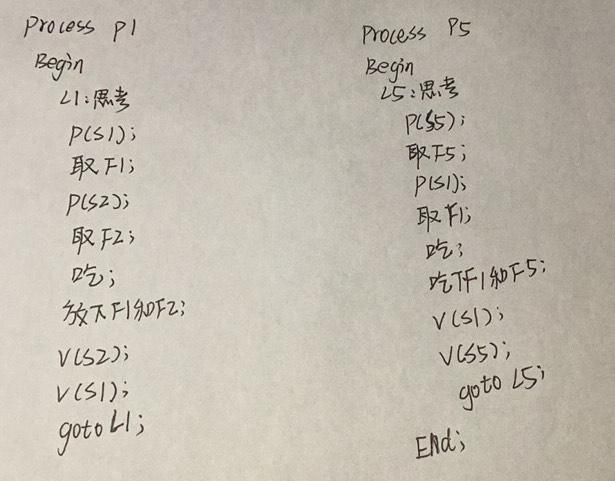 Process P1
Begin
L1:思考
P(S1);
取F1;
P(S2);
取F2;
吃;
放下F1和F2;
V(S2);
V(S1);
goto L1;
Process P5
Begin
L5:思考
P(S5);
取F5;
P(S1);
取F1;
吃;
吃下F1和F5;
V(S1);
V(S5);
goto L5;
End;